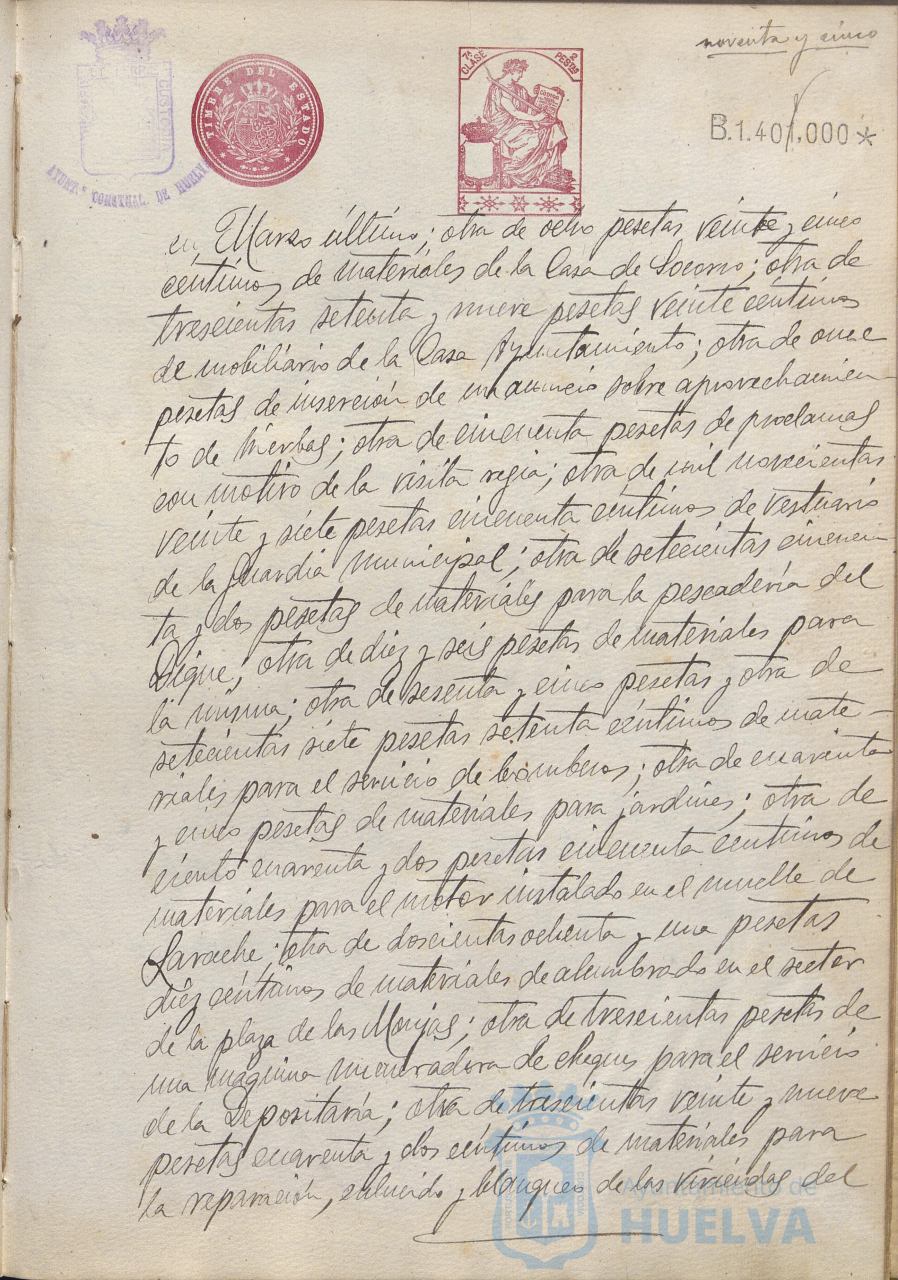 noventa y cinco
TIMBRE DEL ESTADO
7ª CLASE
2 PESTAS
B.1.401.000*
AYUNTº CONSTNAL. DE HUELVA
en Marzo último; otra de ocho pesetas veinte y cinco
céntimos de materiales de la Casa de Socorro; otra de
trescientas setenta y nueve pesetas veinte céntimos
de mobiliario de la Casa Ayuntamiento; otra de once
pesetas de inserción de un anuncio sobre aprovechamien-
to de hierbas; otra de cincuenta pesetas de proclamas
con motivo de la visita regia; otra de mil novecientas
veinte y siete pesetas cincuenta céntimos de vestuario
de la Guardia Municipal; otra de setecientas cincuen-
ta y dos pesetas de materiales para la pescadería del
Dique; otra de diez y seis pesetas de materiales para
la misma; otra de sesenta y cinco pesetas y otra de
setecientas siete pesetas setenta céntimos de mate-
riales para el servicio de bomberos; otra de cuarenta
y cinco pesetas de materiales para jardines; otra de
ciento cuarenta y dos pesetas cincuenta céntimos de
materiales para el motor instalado en el muelle de
Larache; otra de doscientas ochenta y una pesetas
diez céntimos de materiales de alumbrado en el sector
de la plaza de las Monjas; otra de trescientas pesetas de
una máquina numeradora de cheques para el servicio
de la Depositaría; otra de trescientas veinte y nueve
pesetas cuarenta y dos céntimos de materiales para
la reparación, enlucido y blanqueo de las viviendas del
Ayuntamiento de
HUELVA